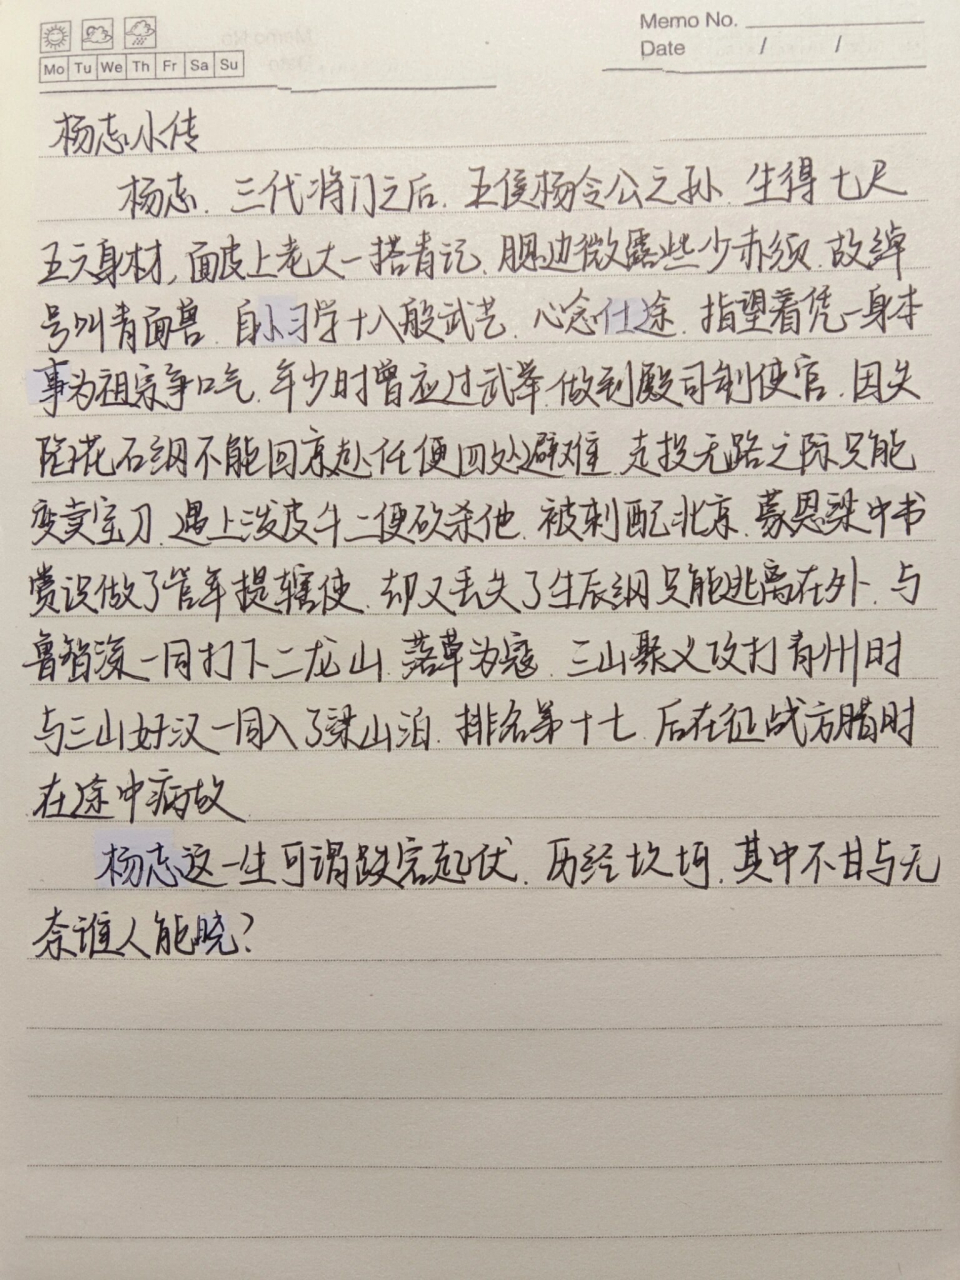 Memo No.
Date / /
Mo Tu We Th Fr Sa Su
杨志小传
杨志.三代将门之后.五侯杨令公之孙.生得七尺
五六身材,面皮上老大一搭青记.腮边微露些少赤须.故绰
号叫青面兽.自小习学十八般武艺.心念仕途.指望着凭一身本
事为祖宗争口气.年少时曾应过武举.做到殿司制使官.因失
陷花石纲不能回京赴任便四处避难.走投无路之际只能
变卖宝刀.遇上泼皮牛二便砍杀他.被刺配北京.蒙恩梁中书
赏识做了管军提辖使.却又丢失了生辰纲只能逃离在外.与
鲁智深一同打下二龙山.落草为寇.三山聚义攻打青州时
与三山好汉一同入了梁山泊.排名第十七.后在征战方腊时
在途中病故
杨志这一生可谓跌宕起伏.历经坎坷.其中不甘与无
奈谁人能晓?